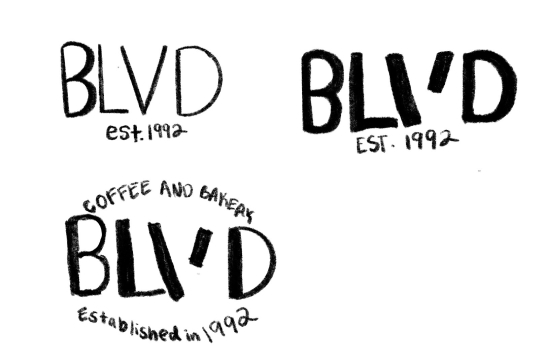 BLVD
est. 1992
BLVD
EST. 1992
COFFEE AND BAKERY
BLVD
Established in 1992